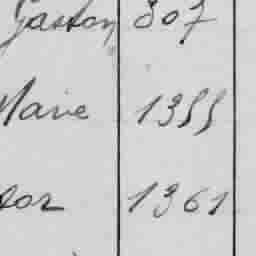 Gaston 307
Marie 1355
tor 1361